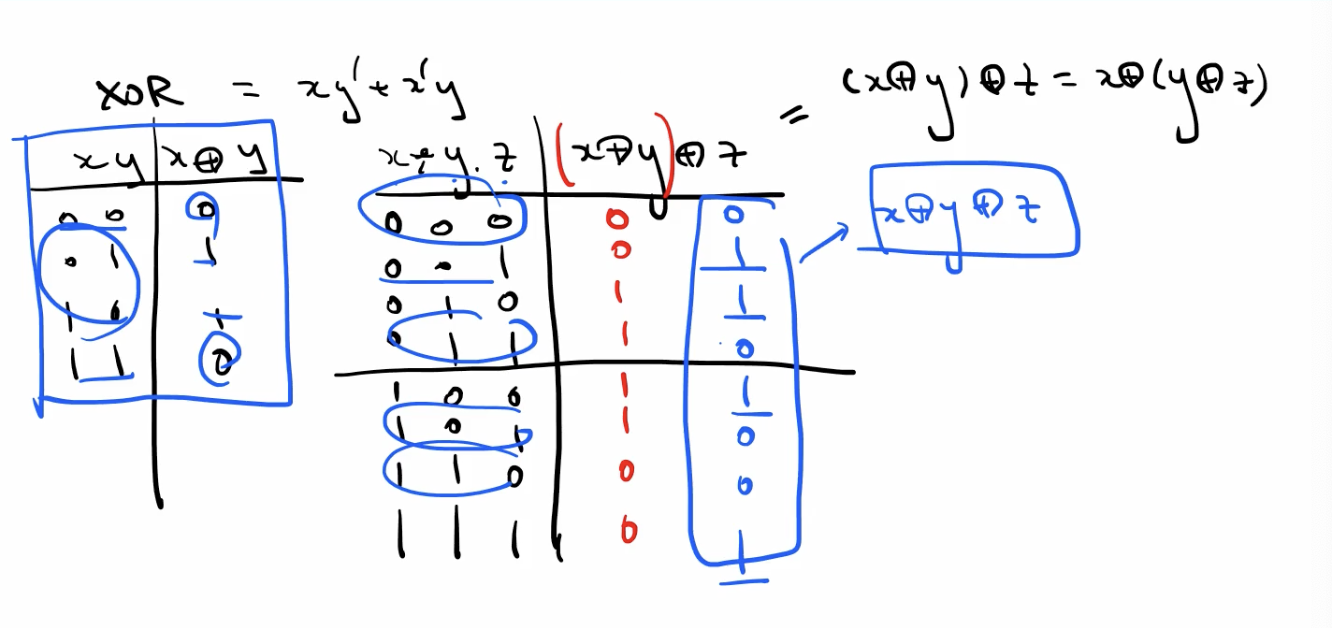 XOR = xy' + x'y
(x⊕y)⊕z = x⊕(y⊕z)
=
x y | x⊕y
0 0 | 0
0 1 | 1
1 0 | 1
1 1 | 0
x y z | (x⊕y)⊕z
0 0 0 | 0 0
0 0 1 | 0 1
0 1 0 | 1 1
0 1 1 | 1 0
1 0 0 | 1 1
1 0 1 | 1 0
1 1 0 | 0 0
1 1 1 | 0 1
x⊕y⊕z